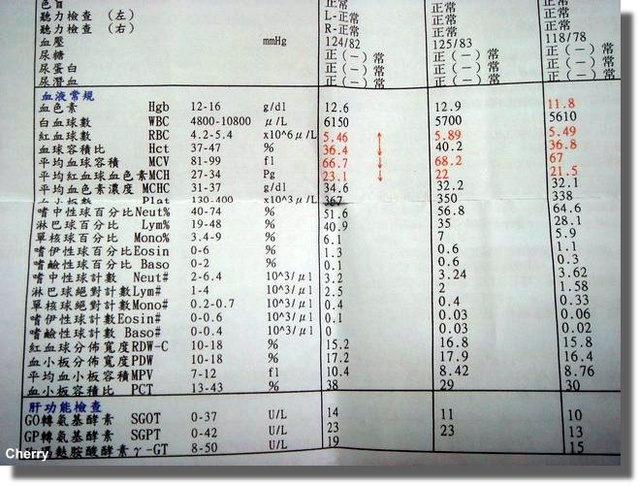 色盲 正常 正常 正常
聽力檢查 (左) L-正常
聽力檢查 (右) R-正常
血壓 mmHg 124/82 125/83 118/78
尿糖 正(－)常 正(－)常 正(－)常
尿蛋白 正(－)常 正(－)常 正(－)常
尿潛血 正(－)常 正(－)常 正(－)常
血液常規
血色素 Hgb 12-16 g/dl 12.6 12.9 11.8
白血球數 WBC 4800-10800 μ/L 6150 5700 5610
紅血球數 RBC 4.2-5.4 x10^6μ/L 5.46 ↑ 5.89 5.49
血球容積比 Hct 37-47 % 36.4 ↓ 40.2 36.8
平均血球容積 MCV 81-99 fl 66.7 ↓ 68.2 67
平均紅血球血色素MCH 27-34 Pg 23.1 ↓ 22 21.5
平均血色素濃度 MCHC 31-37 g/dl 34.6 32.2 32.1
血小板數 Plat 130-400 x10^3/μL 367 350 338
嗜中性球百分比Neut% 40-74 % 51.6 56.8 64.6
淋巴球百分比 Lym% 19-48 % 40.9 35 28.1
單核球百分比 Mono% 3.4-9 % 6.1 7 5.9
嗜伊性球百分比Eosin 0-6 % 1.3 0.6 1.1
嗜鹼性球百分比 Baso 0-2 % 0.1 0.6 0.3
嗜中性球計數 Neut# 2-6.4 10^3/μl 3.2 3.24 3.62
淋巴球絕對計數Lym# 1-4 10^3/μl 2.5 2 1.58
單核球絕對計數Mono# 0.2-0.7 10^3/μl 0.4 0.4 0.33
嗜伊性球計數Eosin# 0-0.6 10^3/μl 0.1 0.03 0.06
嗜鹼性球計數 Baso# 0-0.4 10^3/μl 0 0.03 0.02
紅血球分佈寬度RDW-C 10-18 % 15.2 16.8 15.8
血小板分佈寬度PDW 10-18 % 17.2 17.9 16.4
平均血小板容積MPV 7-12 fl 10.4 8.42 8.76
血小板容積比 PCT 13-43 % 38 29 30
肝功能檢查
GO轉氨基酵素 SGOT 0-37 U/L 14 11 10
GP轉氨基酵素 SGPT 0-42 U/L 23 23 13
麩胺酸酵素γ-GT 8-50 U/L 19 15
Cherry